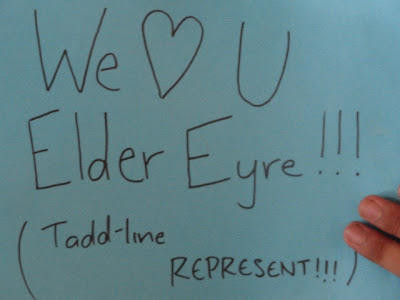 We ♡ U
Elder Eyre!!!
(Tadd-line
REPRESENT!!!)